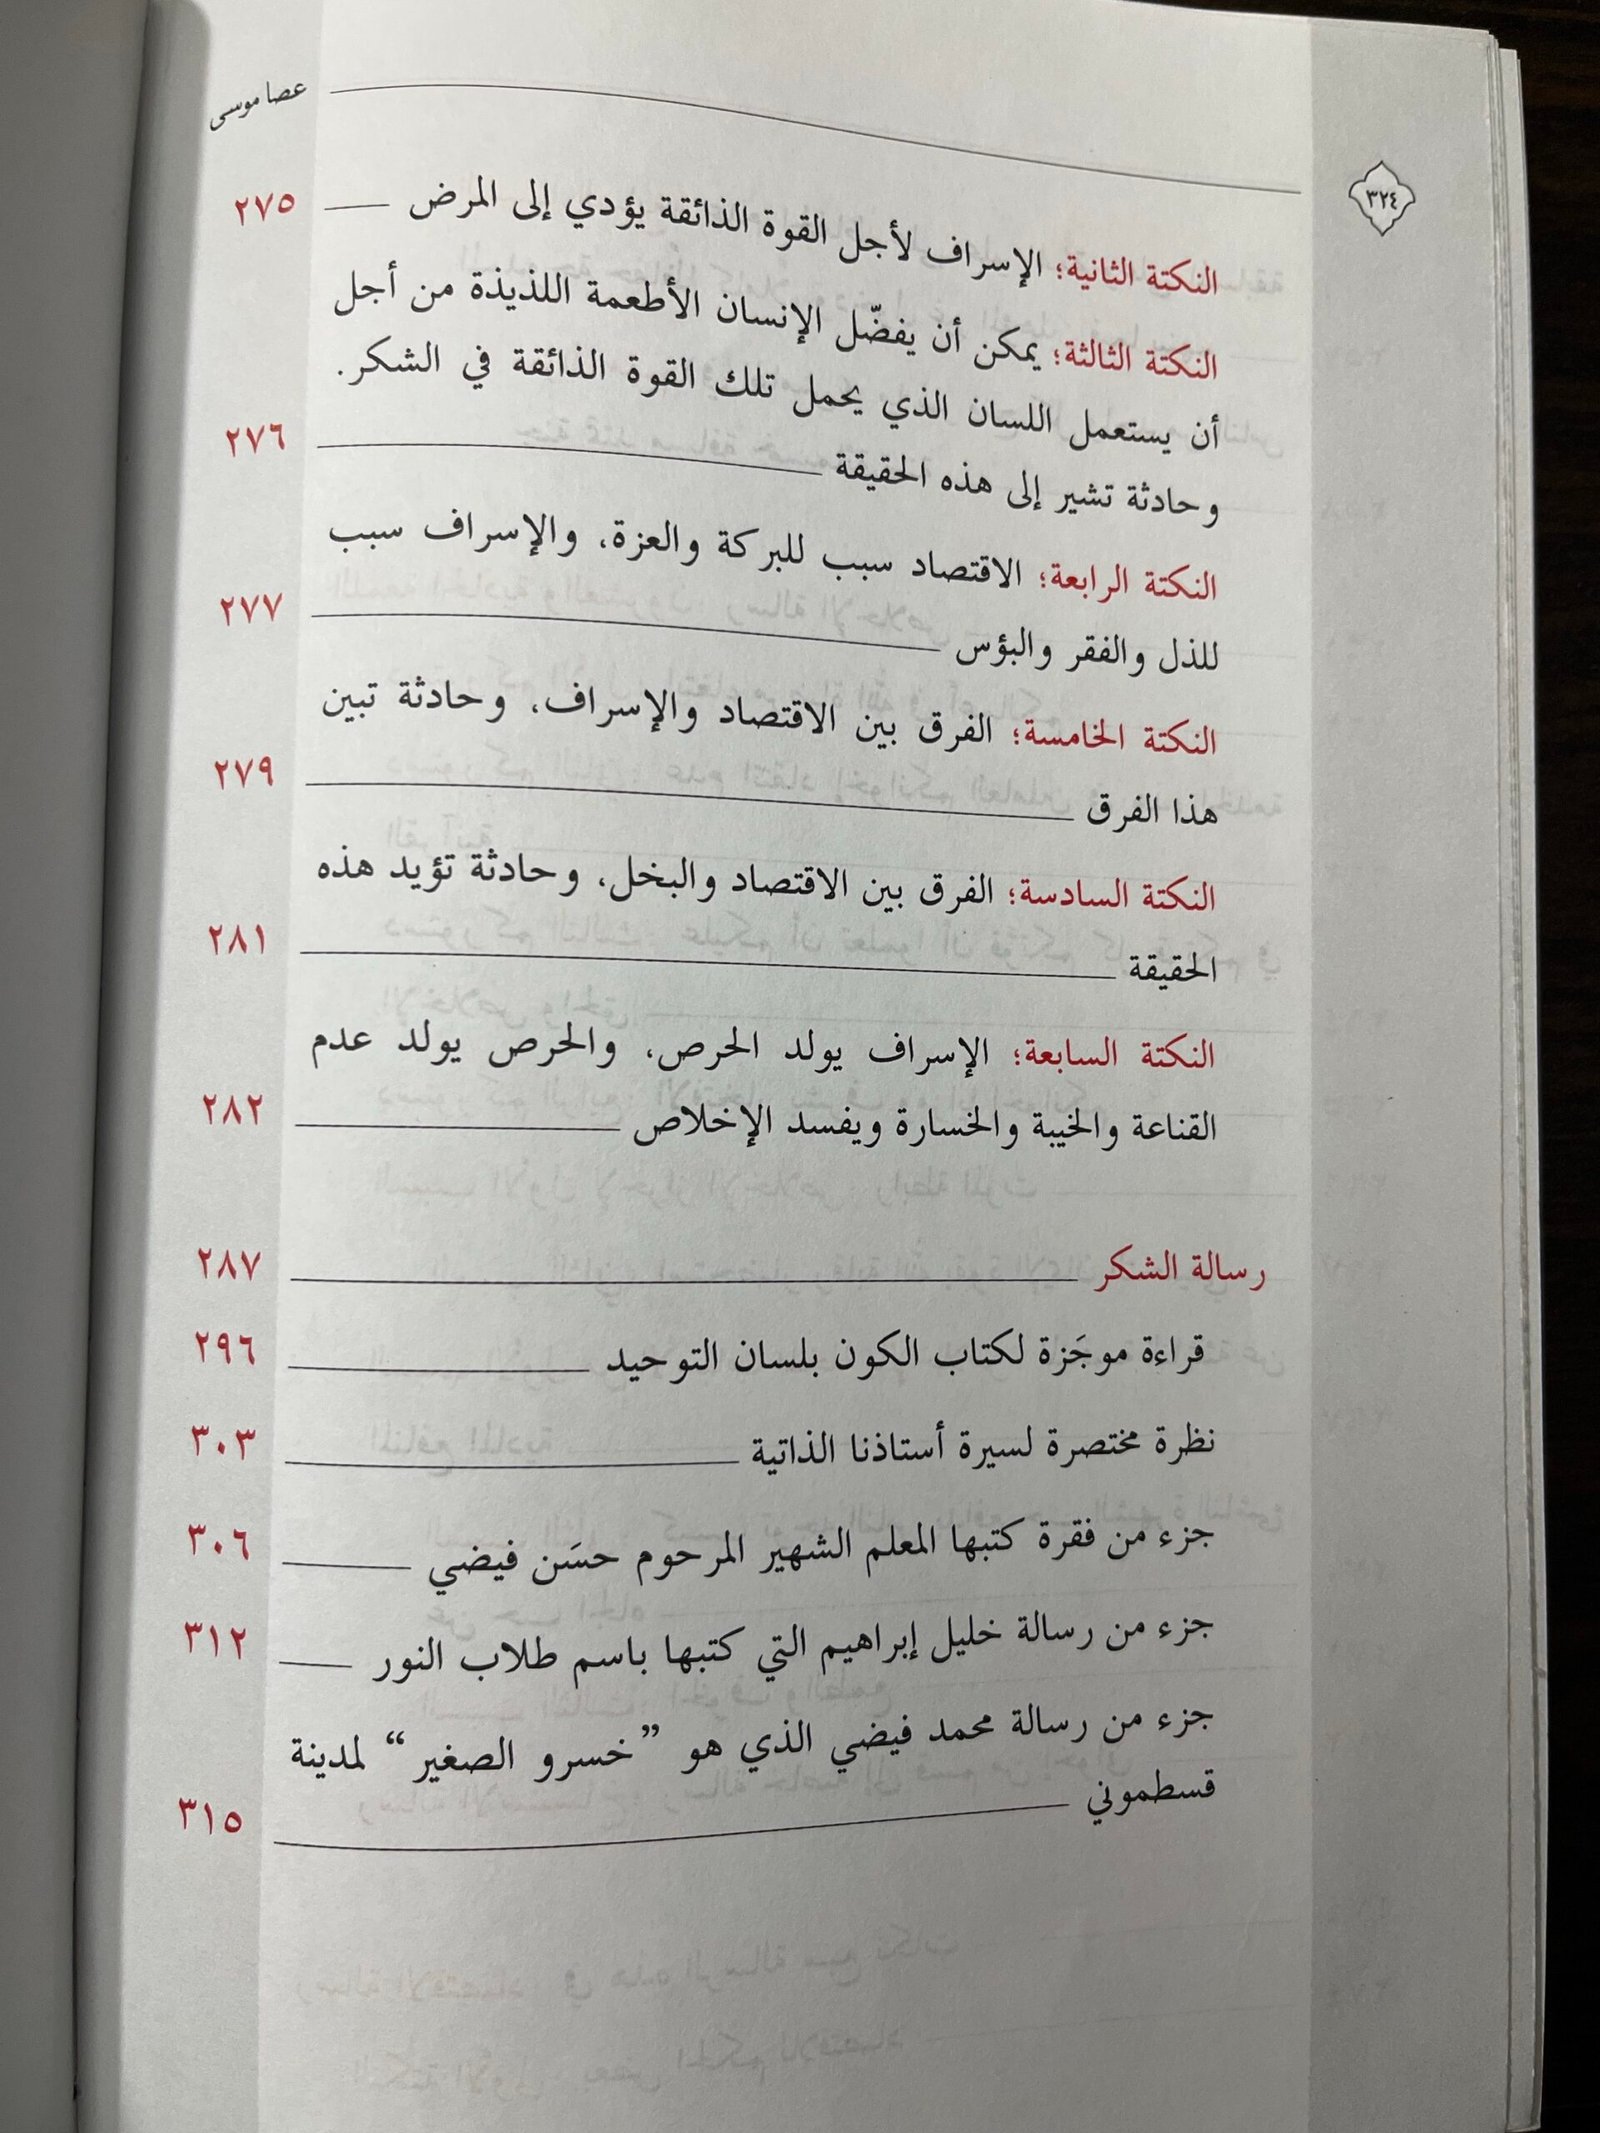 عصا موسى
٣٢٤
النكتة الثانية؛ الإسراف لأجل القوة الذائقة يؤدي إلى المرض ٢٧٥
النكتة الثالثة؛ يمكن أن يفضّل الإنسان الأطعمة اللذيذة من أجل
أن يستعمل اللسان الذي يحمل تلك القوة الذائقة في الشكر.
وحادثة تشير إلى هذه الحقيقة ٢٧٦
النكتة الرابعة؛ الاقتصاد سبب للبركة والعزة، والإسراف سبب
للذل والفقر والبؤس ٢٧٧
النكتة الخامسة؛ الفرق بين الاقتصاد والإسراف، وحادثة تبين
هذا الفرق ٢٧٩
النكتة السادسة؛ الفرق بين الاقتصاد والبخل، وحادثة تؤيد هذه
الحقيقة ٢٨١
النكتة السابعة؛ الإسراف يولد الحرص، والحرص يولد عدم
القناعة والخيبة والخسارة ويفسد الإخلاص ٢٨٢
رسالة الشكر ٢٨٧
قراءة موجَزة لكتاب الكون بلسان التوحيد ٢٩٦
نظرة مختصرة لسيرة أستاذنا الذاتية ٣٠٣
جزء من فقرة كتبها المعلم الشهير المرحوم حسَن فيضي ٣٠٦
جزء من رسالة خليل إبراهيم التي كتبها باسم طلاب النور ٣١٢
جزء من رسالة محمد فيضي الذي هو ”خسرو الصغير“ لمدينة
قسطموني ٣١٥